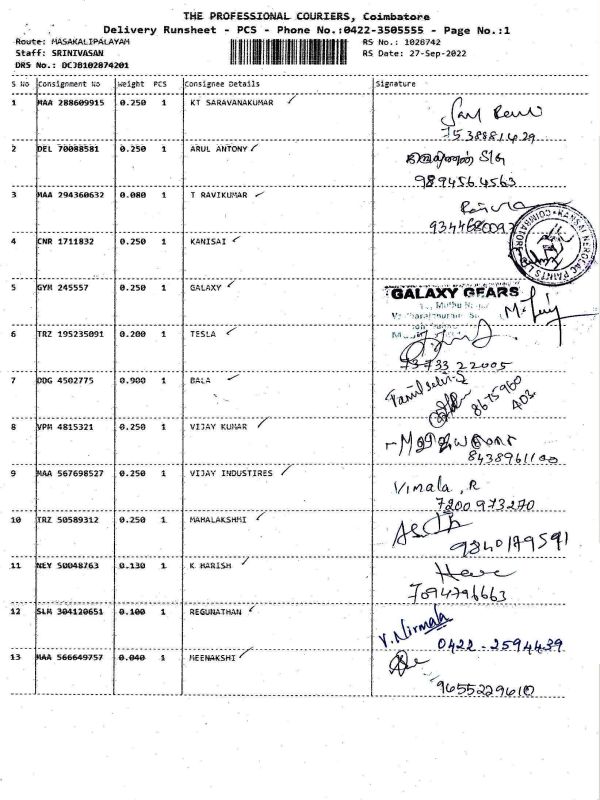 THE PROFESSIONAL COURIERS, Coimbatore
Delivery Runsheet - PCS - Phone No.:0422-3505555 - Page No.:1
Route: MASAKALIPALAYAM
RS No.: 1028742
Staff: SRINIVASAN
RS Date: 27-Sep-2022
DRS No.: DCJB102874201
S No Consignment No Weight PCS Consignee Details Signature
1 MAA 288609915 0.250 1 KT SARAVANAKUMAR
7538881429
2 DEL 70088581 0.250 1 ARUL ANTONY
9894564563
3 MAA 294360632 0.080 1 T RAVIKUMAR
9344680093
4 CNR 1711832 0.250 1 KANISAI
KANSAI NEROLAC PAINTS L COIMBATORE
5 GYM 245557 0.250 1 GALAXY
GALAXY GEARS
6 TRZ 195235091 0.200 1 TESLA
73733 22005
7 DDG 4502775 0.900 1 BALA
Tamil selvi. S
8675960
403
8 VPM 4815321 0.250 1 VIJAY KUMAR
8438961100
9 MAA 567698527 0.250 1 VIJAY INDUSTIRES
Vimala . R
7200 973270
10 TRZ 50589312 0.250 1 MAHALAKSHMI
9840179591
11 NEY 50048763 0.130 1 K HARISH
7094796663
12 SLM 304120651 0.100 1 REGUNATHAN
V. Nirmala
0422 - 2594439
13 MAA 566649757 0.040 1 MEENAKSHI
9655229610